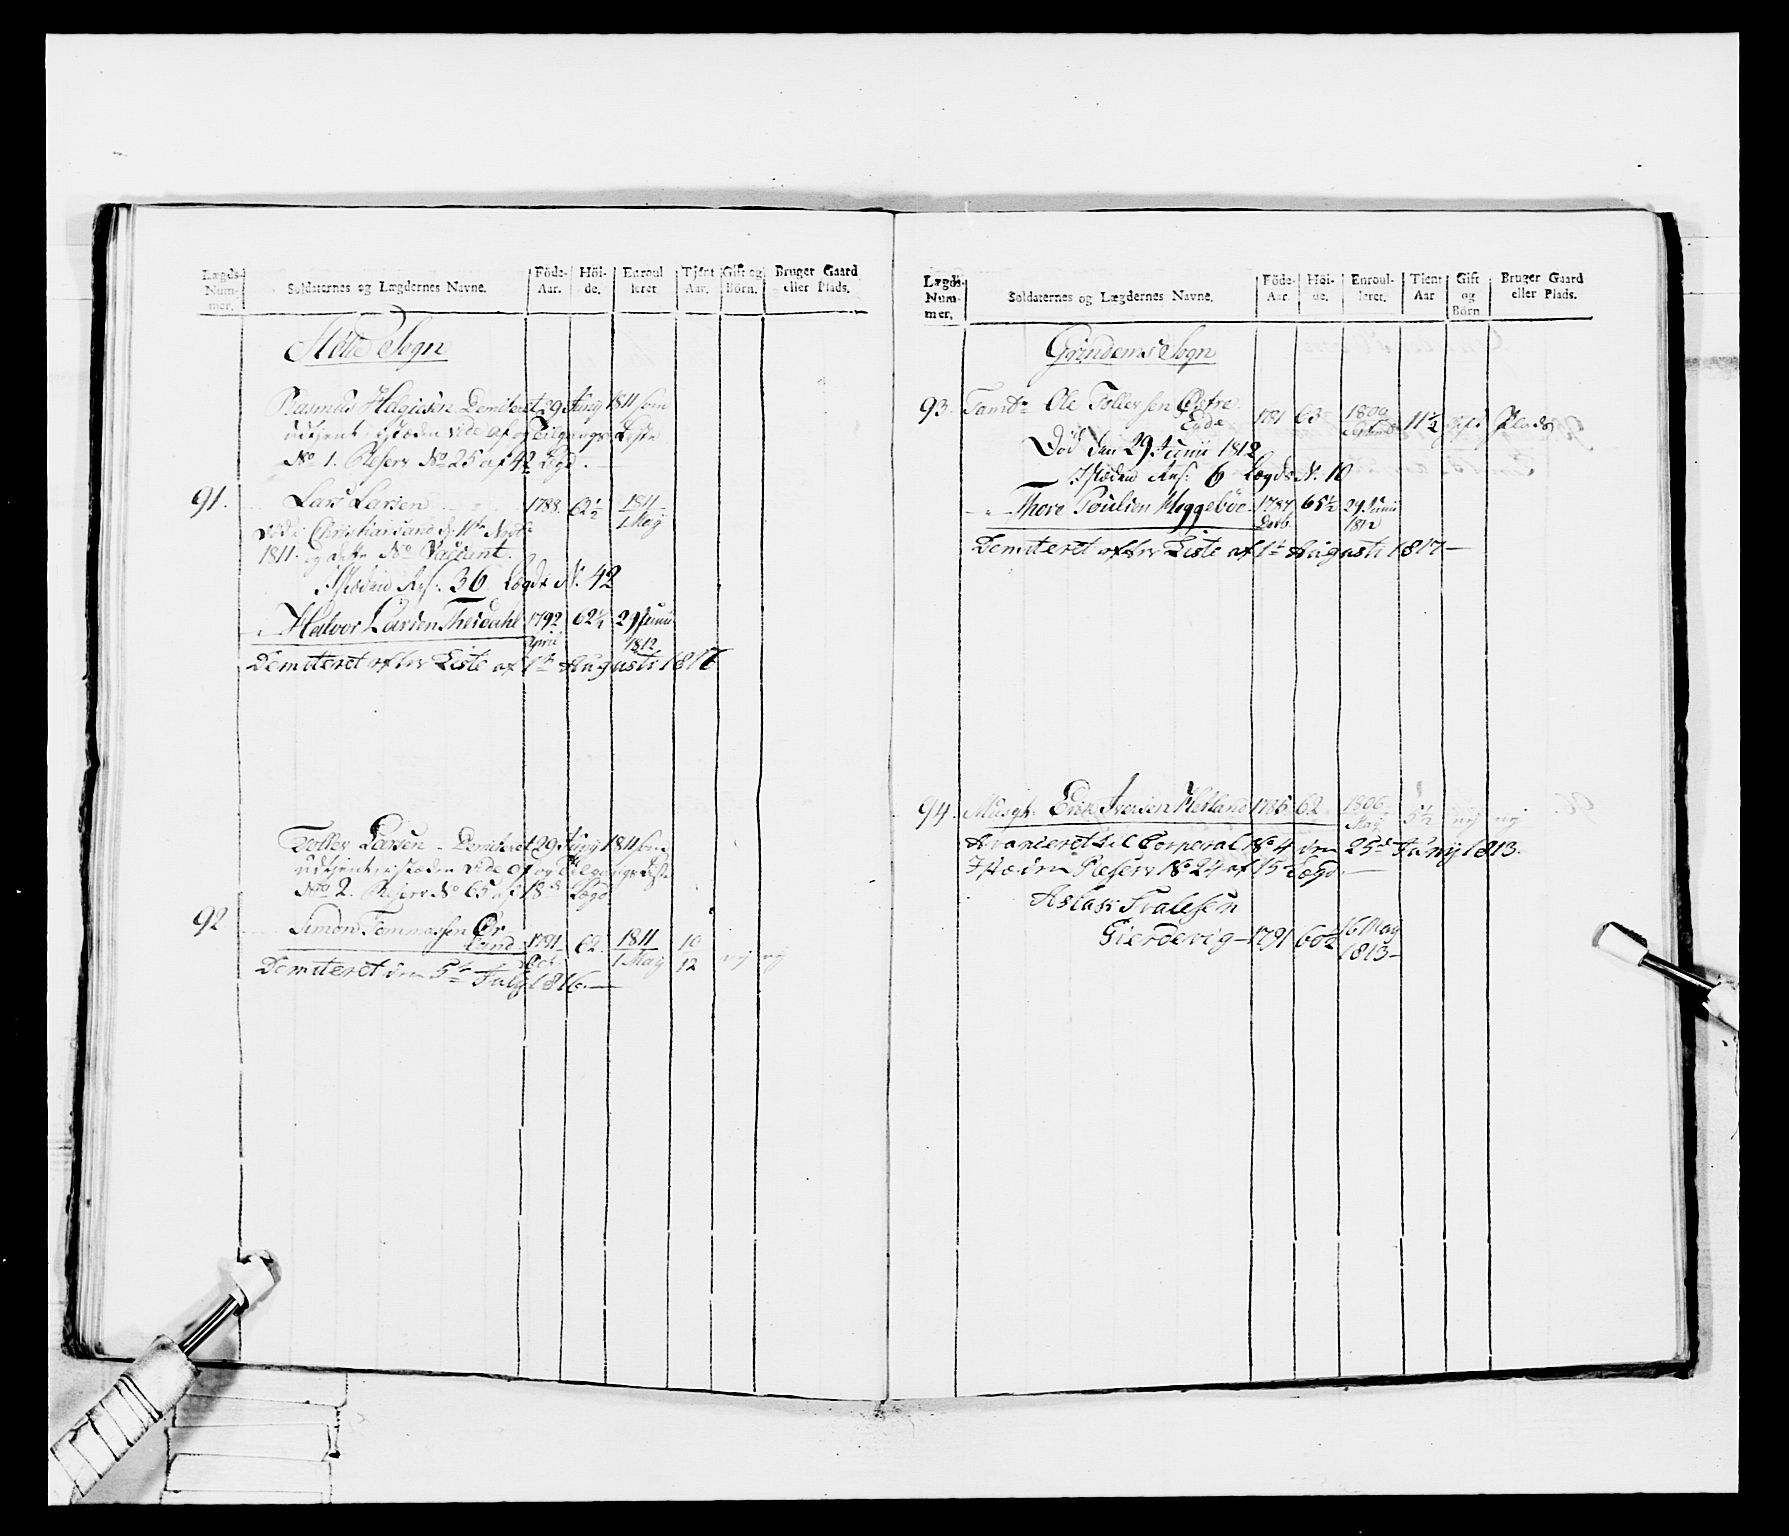 Lægds- Num- mer. Soldaternes og Lægdernes Navne. Föde- Aar. Höi- de. Enroul leret Tjent Aar. Gift og Börn. Bruger Gaard eller Plads.
Sogn
Rasmus Helgiesen Demiteret 29 Junij 1811 som
udtjent istæden vide Af og Tilgangs Liste
No 1. Reserv No 25 af 42 Lægd.
91. Lars Larsen 1788. 62½ 1811 1 Maij
Död i Christiansand d. 11te
1811. og dette No Vacant.
Istæden Res: 36 Lægds N. 42
Halvor Larsen 1792 April 62¼ 29 Junii 1812
Demiteret efter Liste af 1te Augusti 1817
Tolles Larsen Demiteret 29 Junij 1811 som
udtjent istæden vide Af og Tilgangs List
No 2. Reserv No 65 af 18de Lægd
92 Simon Tommessen Ør-
land 1791 Oct. 62. 1811 1 Maij 10/12 nej nej
Demiteret den 5te July 1816.
Lægds- Num- mer. Soldaternes og Lægdernes Navne. Föde- Aar. Höi- de. Enroul- leret. Tient Aar Gift og Börn. Bruger Gaard eller Plads.
Grindems Sogn
93. Tambr Ole Tollefsen Østre
Eyde 1781 63 1800 11½ gift Plads
Död den 29 Junii 1812
Istæden Res: 6 Lægds N. 10
Thore Poulsen Heggeböe 1787 65½ 29 Junii 1812
Demiteret efter Liste af 1te Augusti 1817
94. Musqt. Erik Iversen Hetland 1785 62 1806 Maij 5½ nej nej
Avanceret til Corporal No 4 den 25de Junij 1813.
Istæden Reserv No 24 af 15de Lægd.
Aslak Tralesen
Gierdevig 1791 60½ 16 May 1813